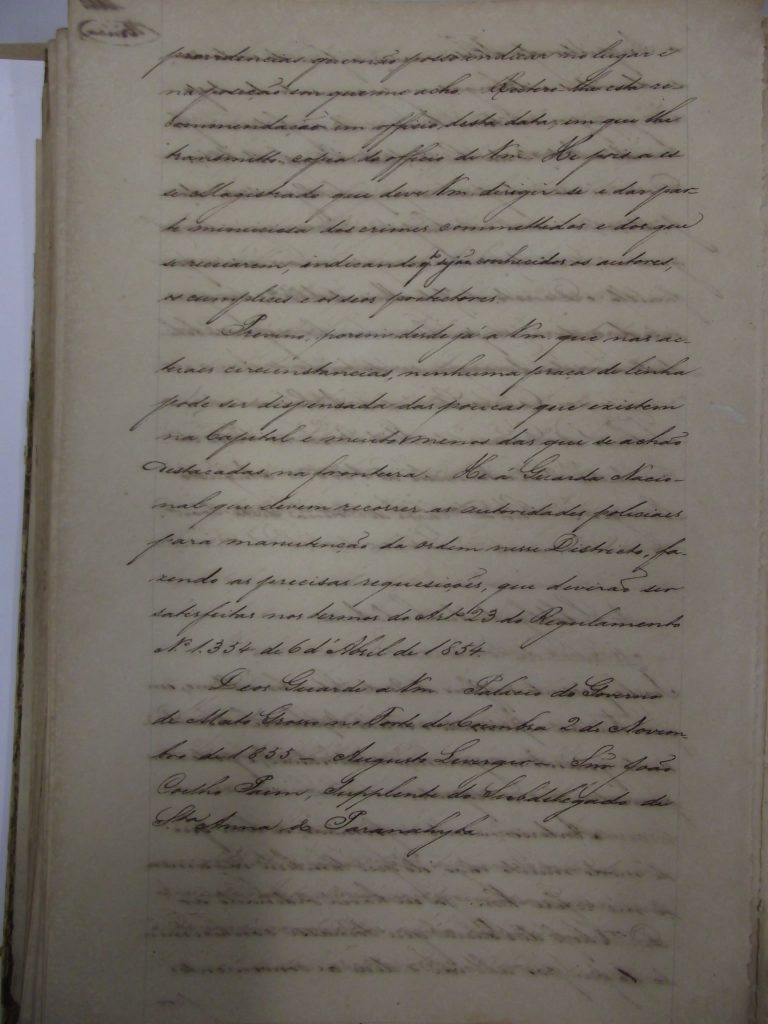 providencias que não posso indicar no lugar e
na posição em que me acho. Reitero-lhe esta re-
commendação em officio desta data, em que lhe
transmitto copia do officio de Vm. He pois a es-
se Magistrado que deve Vm. dirigir-se e dar par-
te minuciosa dos crimes commettidos e dos que
se receiarem, indicando q.do sejão conhecidos os autores,
os cumplices e os seos protectores.
Previno, porem desde já a Vm. que nas ac-
tuaes circunstancias, nenhuma praça de linha
pode ser dispensada das poucas que existem
na Capital e muito menos das que se achão
destacadas na fronteira. He á Guarda Nacio-
nal que devem recorrer as autoridades policiaes
para manutenção da ordem nesse Districto, fa-
zendo as precisas requesições, que deverão ser
satisfeitas nos termos do Art.º 23 do Regulamento
Nº 1.354 de 6 d'Abril de 1854.
Deos Guarde a Vm. Palacio do Governo
de Mato Grosso no Forte de Coimbra 2 de Novem-
bro de 1855 = Augusto Leverger = Snr. João
Coelho Paim, Supplente do Subdelegado de
Sta Anna de Paranahyba